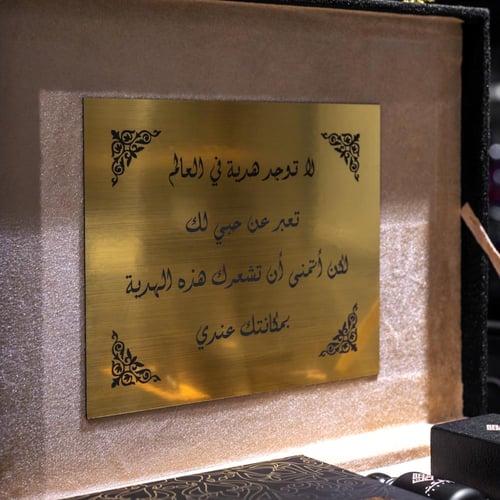 لا توجد هدية في العالم
تعبر عن حبي لك
لكن أتمنى أن تشعرك هذه الهدية
بمكانتك عندي